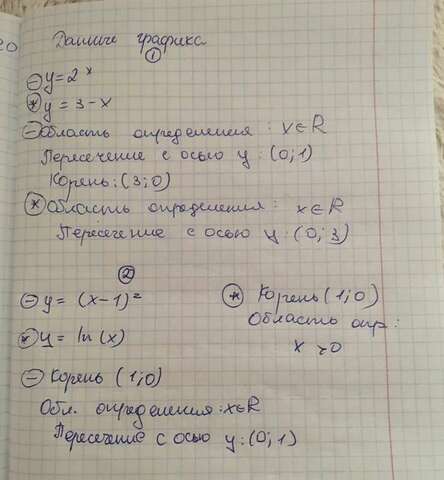 Данные графика
①
⊖ y = 2^x
⊛ y = 3 - x
⊖ Область определения : x ∈ R
Пересечение с осью y : (0; 1)
Корень : (3; 0)
⊛ Область определения : x ∈ R
Пересечение с осью y : (0; 3)
②
⊖ y = (x-1)²
⊛ y = ln(x)
⊖ Корень (1; 0)
Обл. определения : x ∈ R
Пересечение с осью y : (0; 1)
⊛ Корень (1; 0)
Область опр :
x > 0